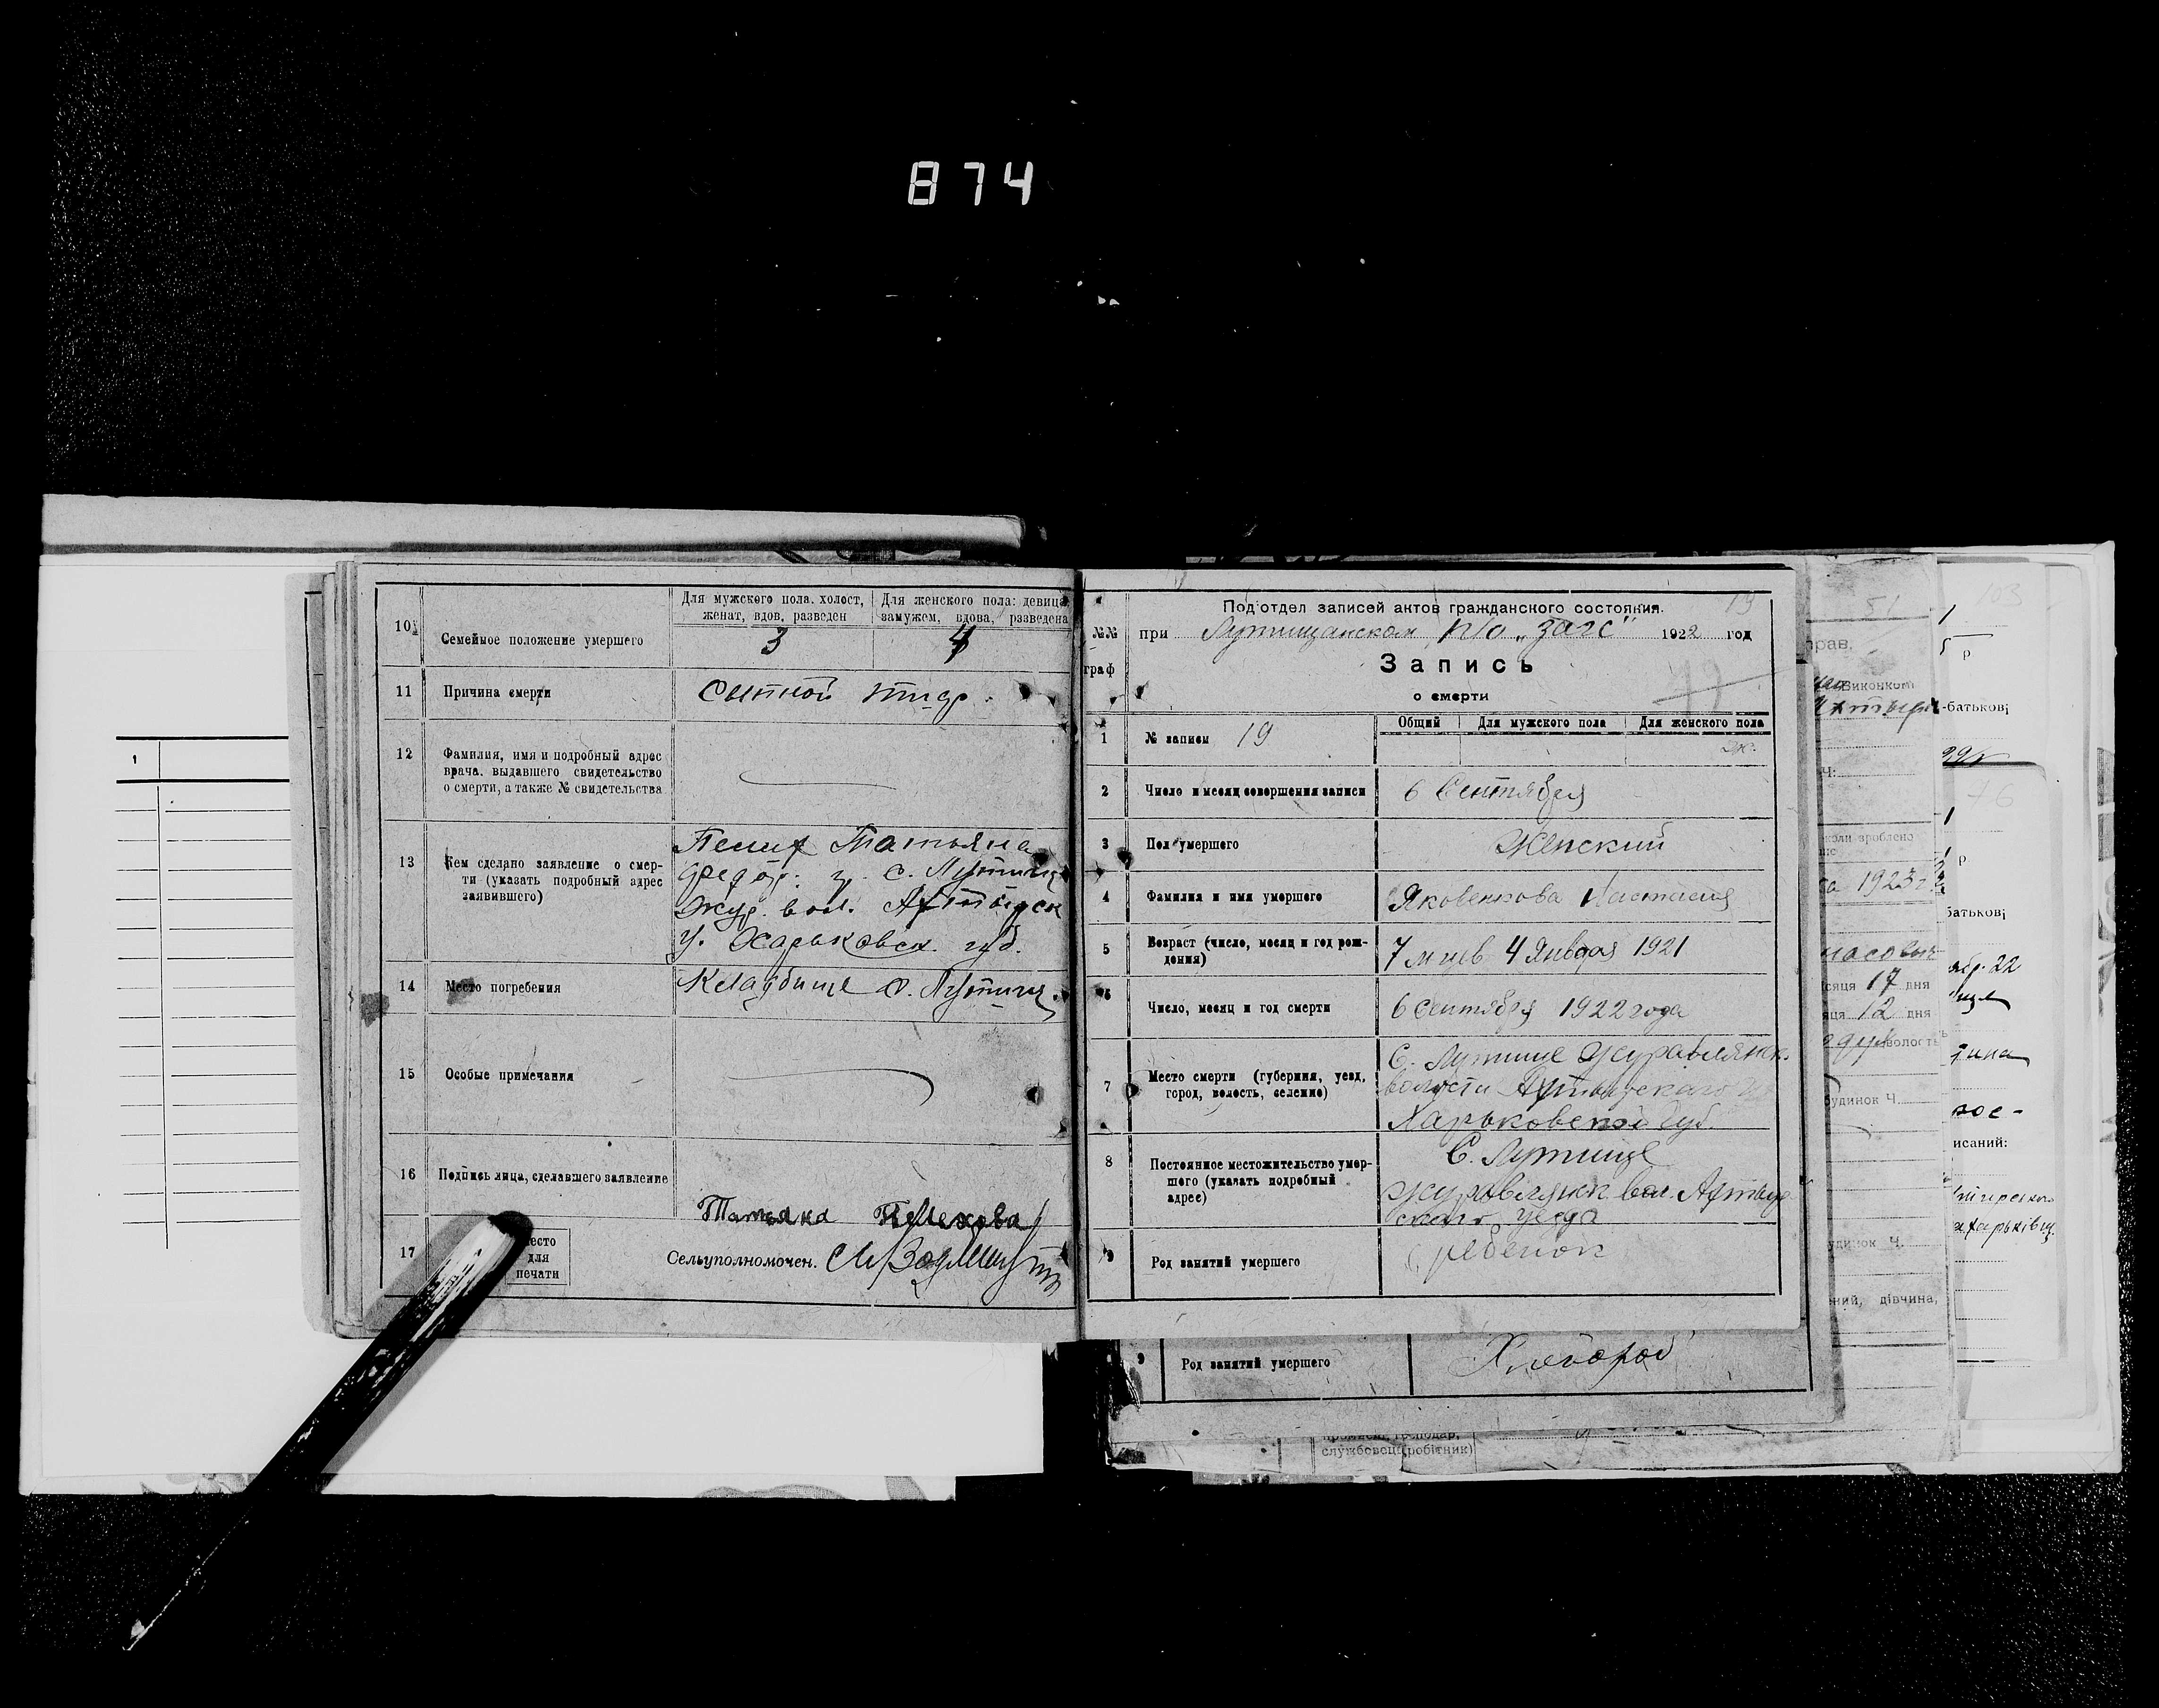 874
10
Семейное положение умершего
Для мужского пола. холост, женат, вдов, разведен
Для женского пола: девица, замужем, вдова, разведена
3
4
11
Причина смерти
Сыпной тиф.
12
Фамилия, имя и подробный адрес
врача, выдавшего свидетельство
о смерти, а также № свидетельства
13
Кем сделано заявление о смер-
ти (указать подробный адрес
заявившего)
Пелих Татьяна
с. Лутищ
Жур. вол. Ахтырск
у. Харьковск. губ.
14
Место погребения
Кладбище с. Лутищ.
15
Особые примечания
16
Подпись лица, сделавшего заявление
Татьяна Пелехова
17
Место
для
печати
Сельуполномочен.
19
Под'отдел записей актов гражданского состояния.
№№
граф
при Лутищанском п/о „Загс" 1922 год
Запись
о смерти
1
№ записи 19
Общий
Для мужского пола
Для женского пола
ж.
2
Число и месяц совершения записи
6 Сентября
3
Пол умершего
Женский
4
Фамилия и имя умершего
Яковенкова Настасия
5
Возраст (число, месяц и год рож-
дения)
7 м цев 4 Января 1921
6
Число, месяц и год смерти
6 Сентября 1922 года
7
Место смерти (губерния, уезд,
город, волость, селение)
С. Лутище Журавлянск.
волости Ахтырского у
Харьковской губ.
8
Постоянное местожительство умер-
шего (указать подробный
адрес)
С. Лутище
Журавлянск вол. Ахтыр
ского уезда
9
Род занятий умершего
ребенок
9
Род занятий умершего
Хлебороб
службовець, робітник)
51
прав.
Виконком
Ч:
коли зроблено
1923 г.
сяця 17 дня
яця 12 дня
волость
будинок Ч.
удинок Ч.
ний, дівчина,
1
103
р
-батькові
76
р
батькові
22
исаний:
1